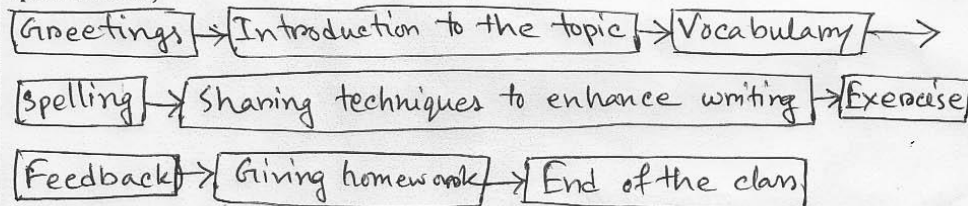 Greetings → Introduction to the topic → Vocabulary →
Spelling → Sharing techniques to enhance writing → Exercise
Feedback → Giving homework → End of the class